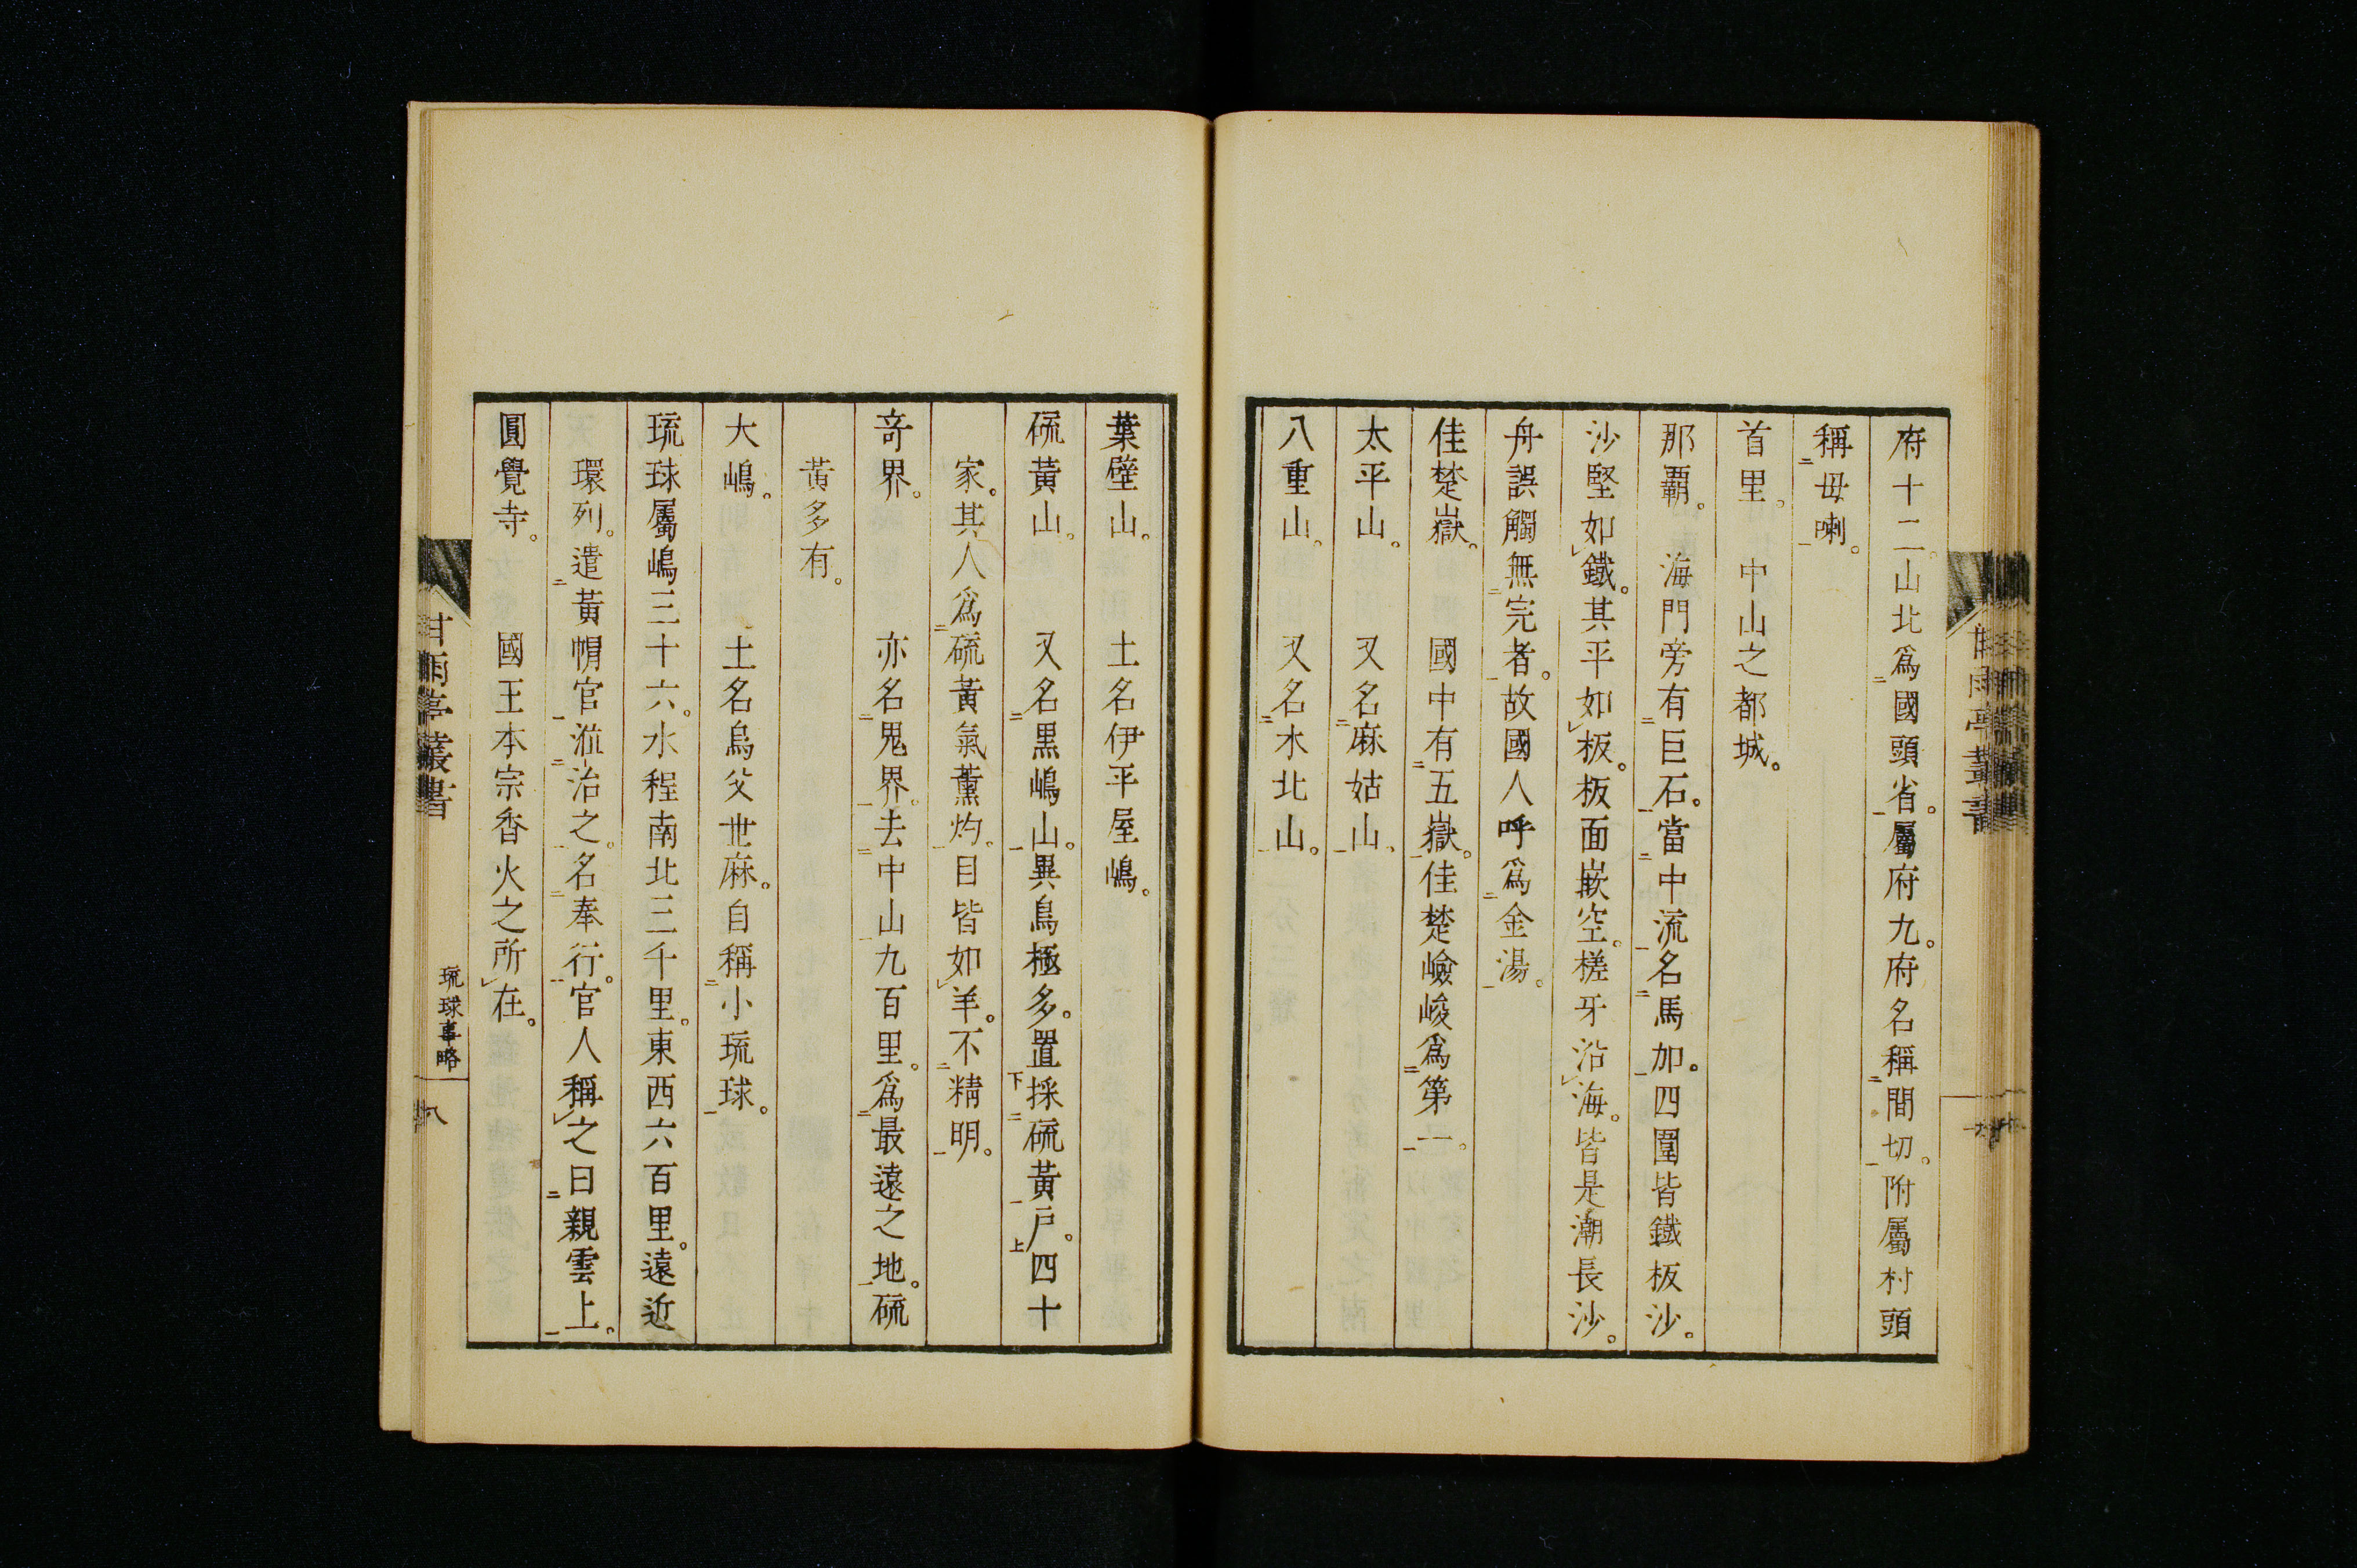 府十二。山北爲國頭省。屬府九。府名稱間切。附屬村頭
稱毋喇。
首里。　中山之都城。
那霸。　海門旁有巨石。當中流名馬加。四圍皆鐵板沙。
沙堅如鐵。其平如板。板面嵌空。槎牙沿海。皆是潮長沙。
舟誤觸無完者。故國人呼爲金湯。
佳楚嶽。　國中有五嶽。佳楚嶮峻爲第一。
太平山。　又名麻姑山。
八重山。　又名木北山。
葉壁山。　土名伊平屋嶋。
硫黃山。　又名黒嶋山。異鳥極多。置採硫黃戶。四十
家。其人爲硫黃氣薰灼。目皆如羊。不精明。
奇界。　亦名鬼界。去中山九百里。爲最遠之地。硫
黃多有。
大嶋。　土名烏父世麻。自稱小琉球。
琉球屬嶋三十六。水程南北三千里。東西六百里。遠近
環列。遣黃帽官涖治之。名奉行。官人稱之曰親雲上。
圓覺寺。　國王本宗香火之所在。
甘雨亭叢書
琉球事略
八